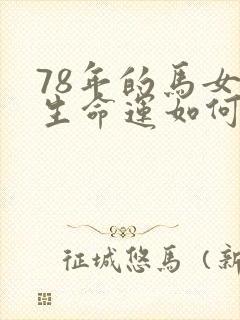 78年的馬女
生命運如何
征城悠馬（新